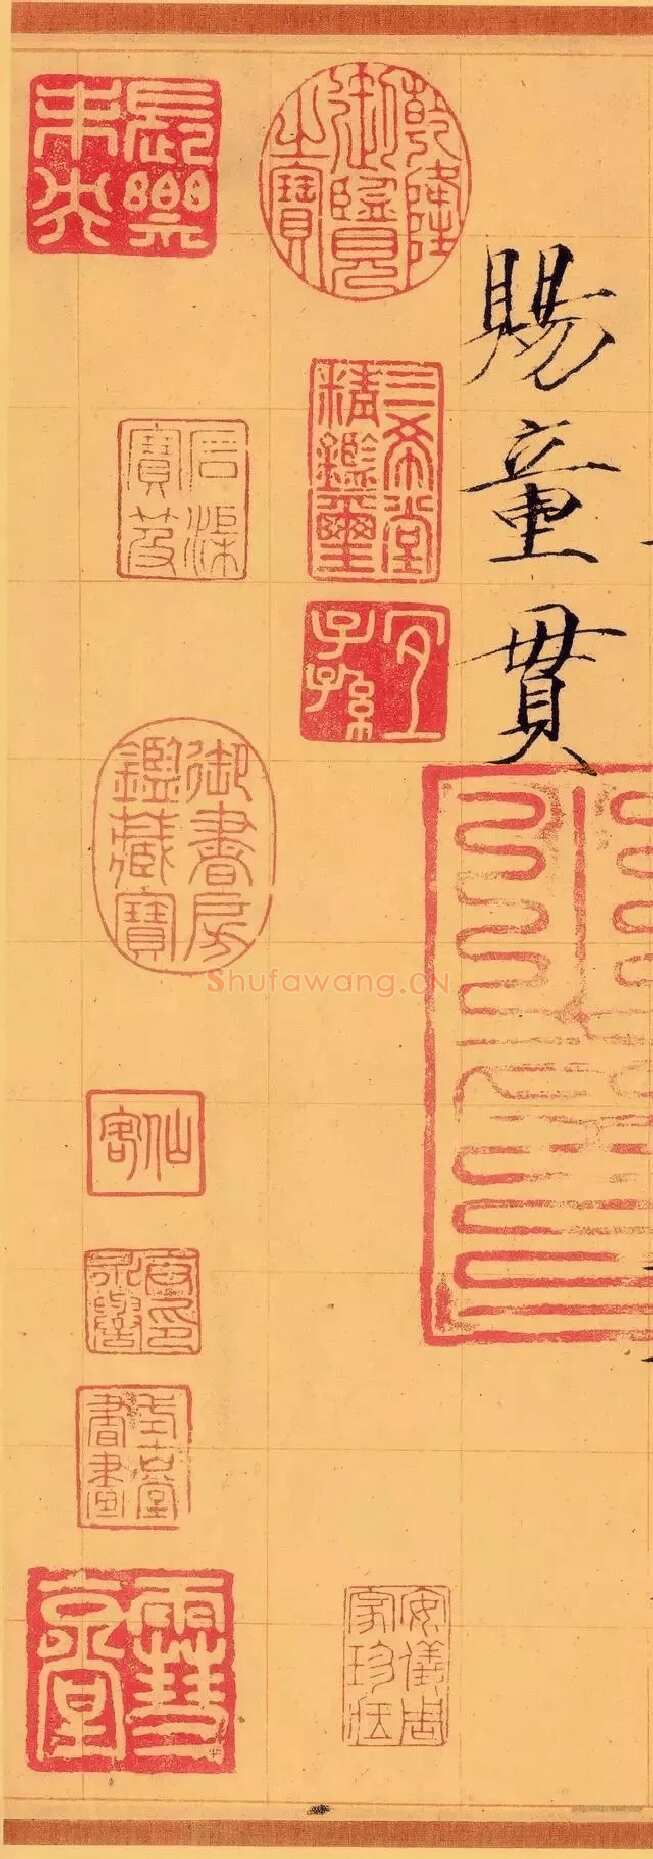 賜童貫
乾隆御覽之寶
三希堂精鑑璽
宜子孫
安儀周家珍藏
長樂未央
石渠寶笈
御書房鑑藏寶
Shufawang.CN
仙客
式古堂書畫